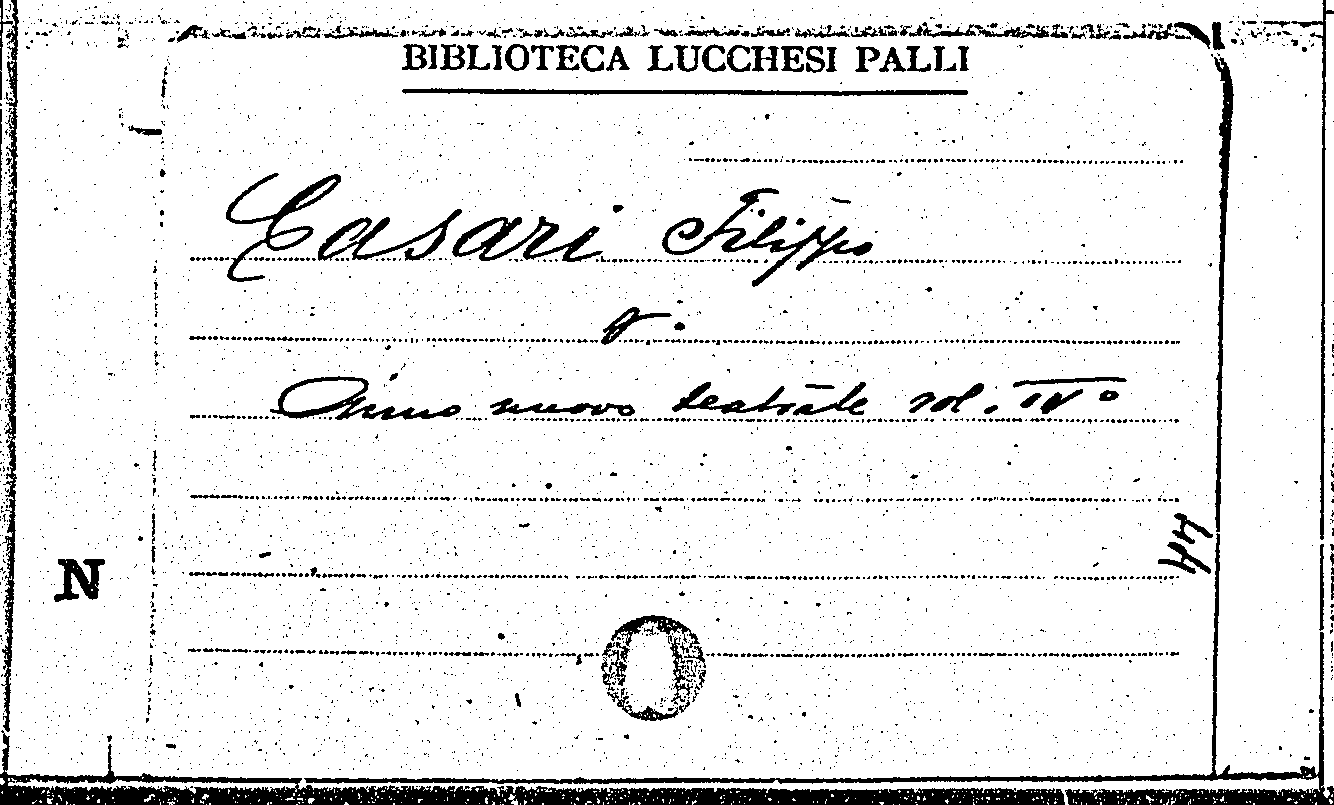 BIBLIOTECA LUCCHESI PALLI
Casari Filippo
v.
Anno nuovo teatrale vol. IV°
44
N